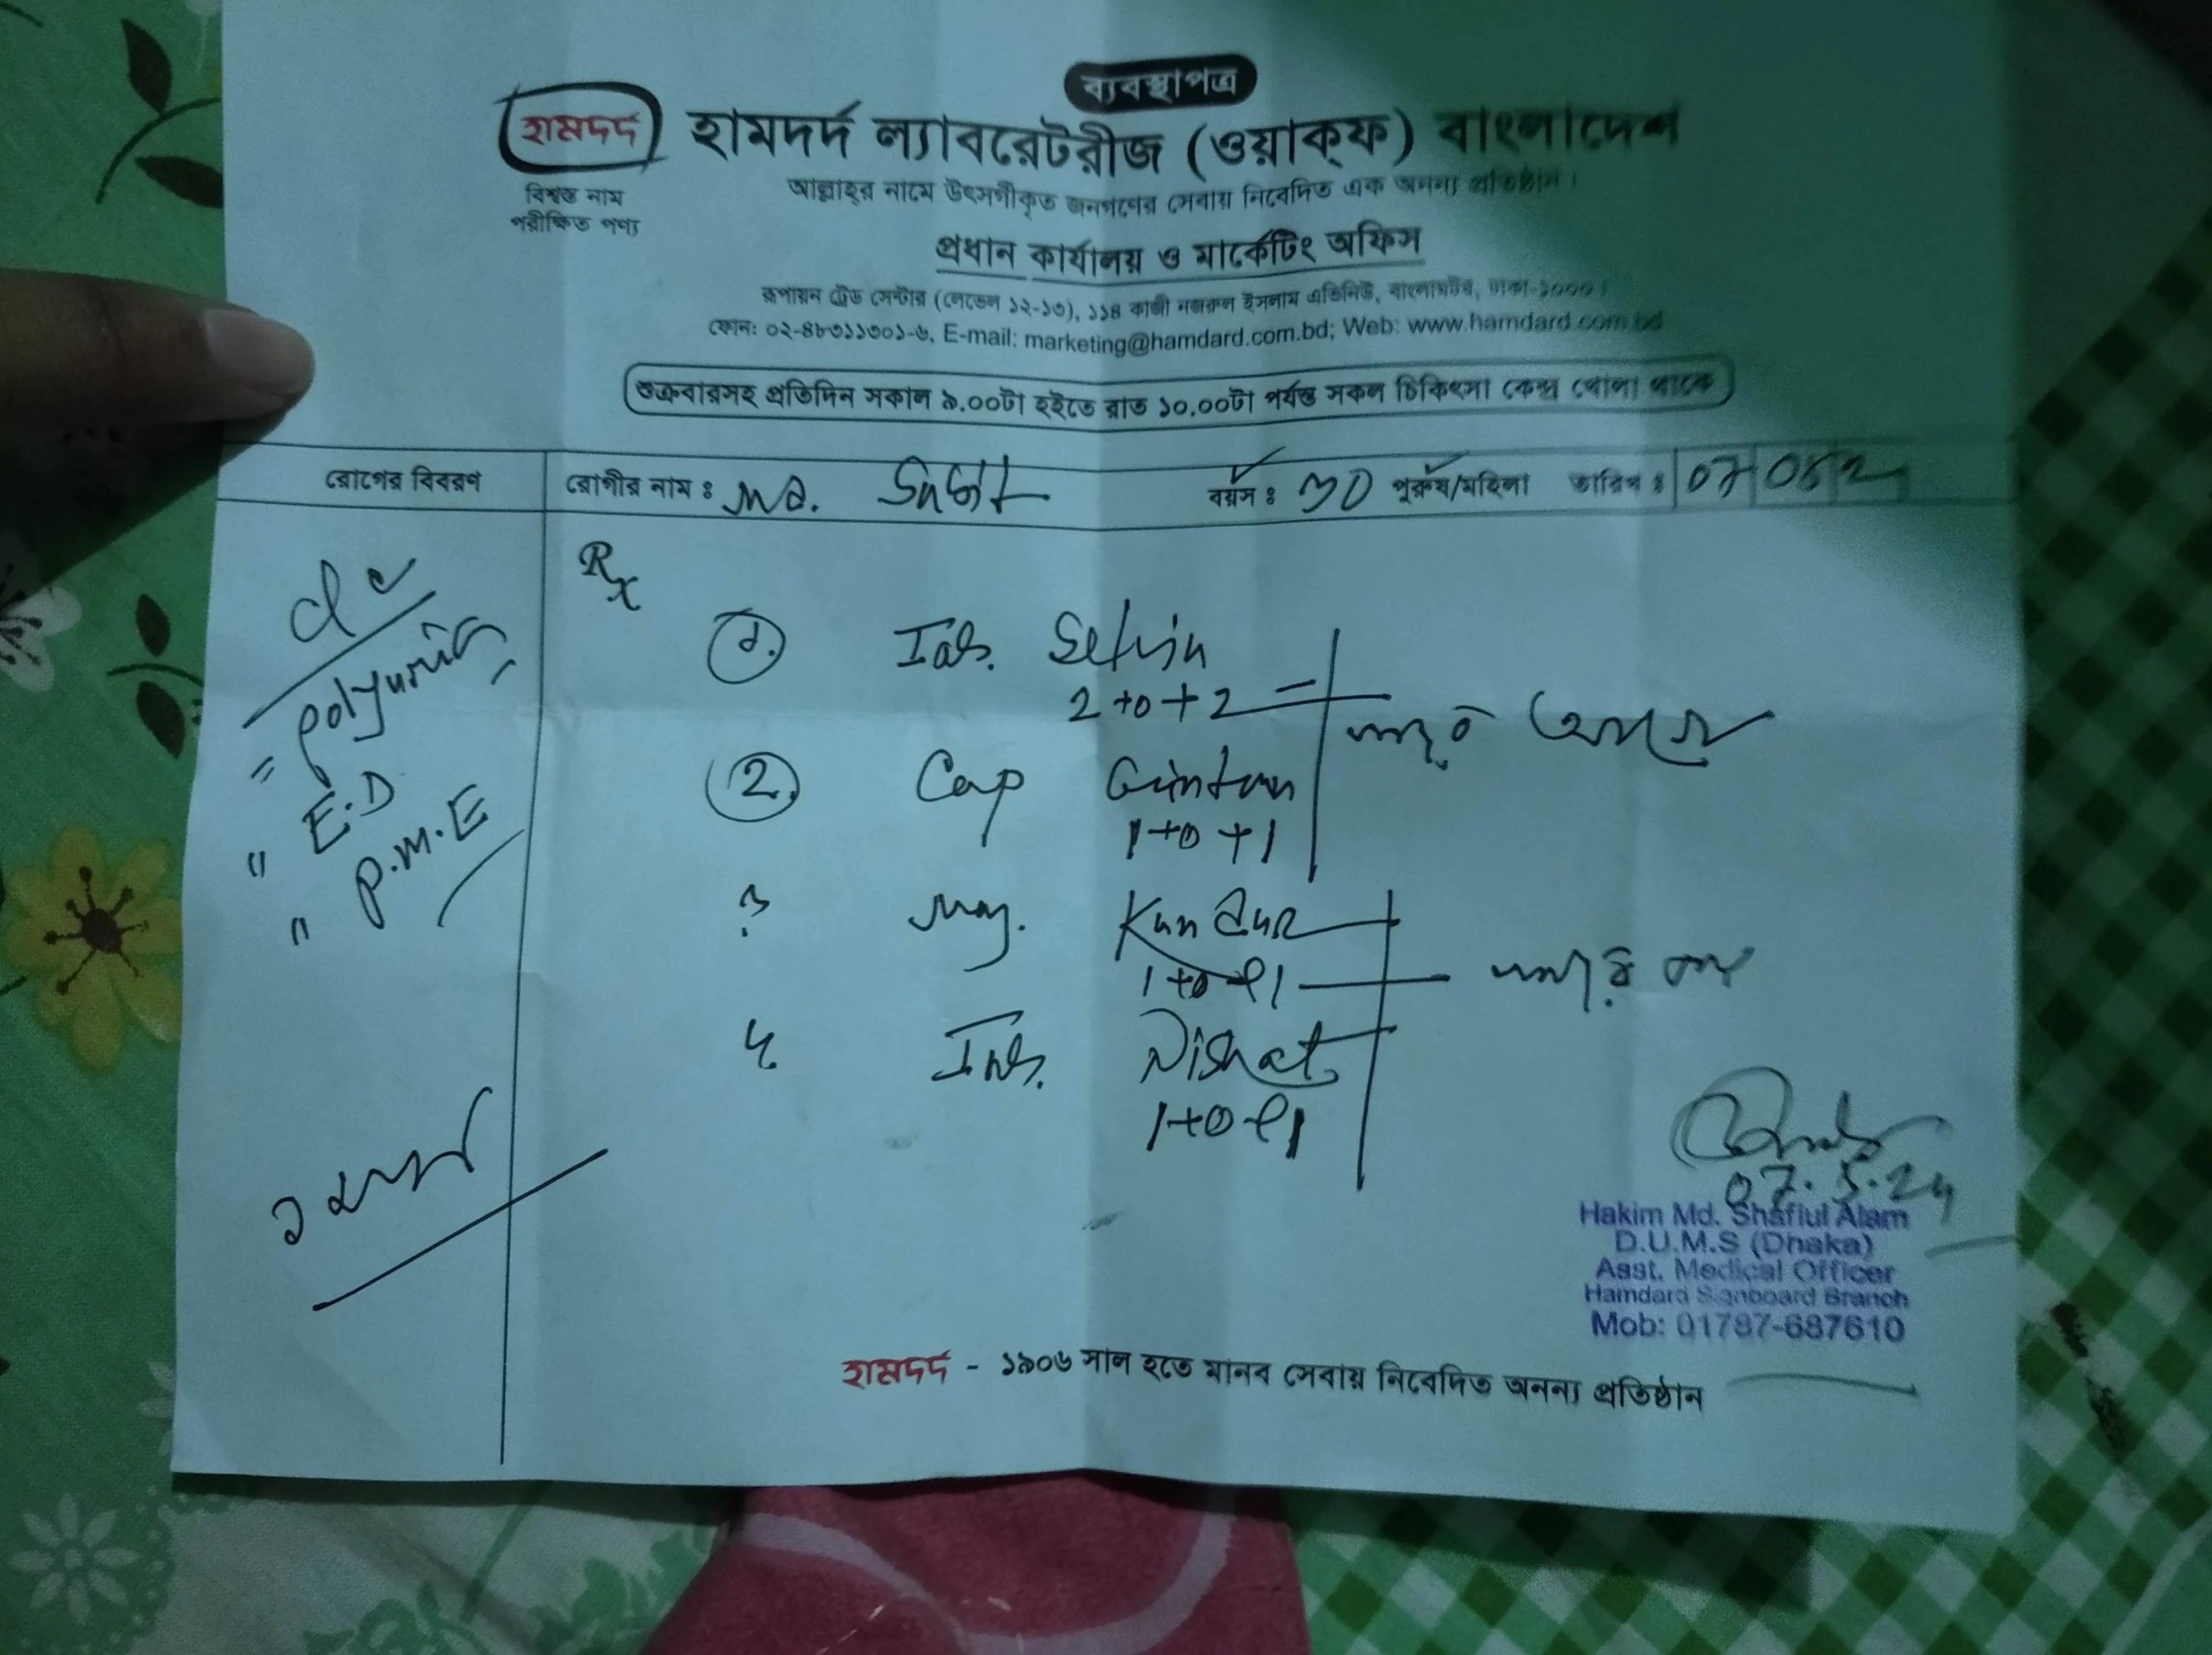 ব্যবস্থাপত্র
হামদর্দ
হামদর্দ ল্যাবরেটরীজ (ওয়াক্‌ফ) বাংলাদেশ
বিশ্বস্ত নাম
পরীক্ষিত পণ্য
আল্লাহ্‌র নামে উৎসর্গীকৃত জনগণের সেবায় নিবেদিত এক অনন্য প্রতিষ্ঠান।
প্রধান কার্যালয় ও মার্কেটিং অফিস
রূপায়ন ট্রেড সেন্টার (লেভেল ১২-১৩), ১১৪ কাজী নজরুল ইসলাম এভিনিউ, বাংলামটর, ঢাকা-১০০০।
ফোন: ০২-৪৮৩১১৩০১-৬, E-mail: marketing@hamdard.com.bd; Web: www.hamdard.com.bd
শুক্রবারসহ প্রতিদিন সকাল ৯.০০টা হইতে রাত ১০.০০টা পর্যন্ত সকল চিকিৎসা কেন্দ্র খোলা থাকে
রোগের বিবরণ
রোগীর নাম : Md. বয়স : 30 পুরুষ/মহিলা তারিখ : 07 05 2
Rx
polyuria
E.D
P.M.E
1. Tab.
2+0+2
2. Cap Ginton
1+0+1
৩ Maj. Kundur
1+0+1
৪ Tab. Nishat
1+0+1
07.5.24
Hakim Md. Shafiul Alam
D.U.M.S (Dhaka)
Asst. Medical Officer
Hamdard Signboard Branch
Mob: 01787-687610
হামদর্দ - ১৯০৬ সাল হতে মানব সেবায় নিবেদিত অনন্য প্রতিষ্ঠান